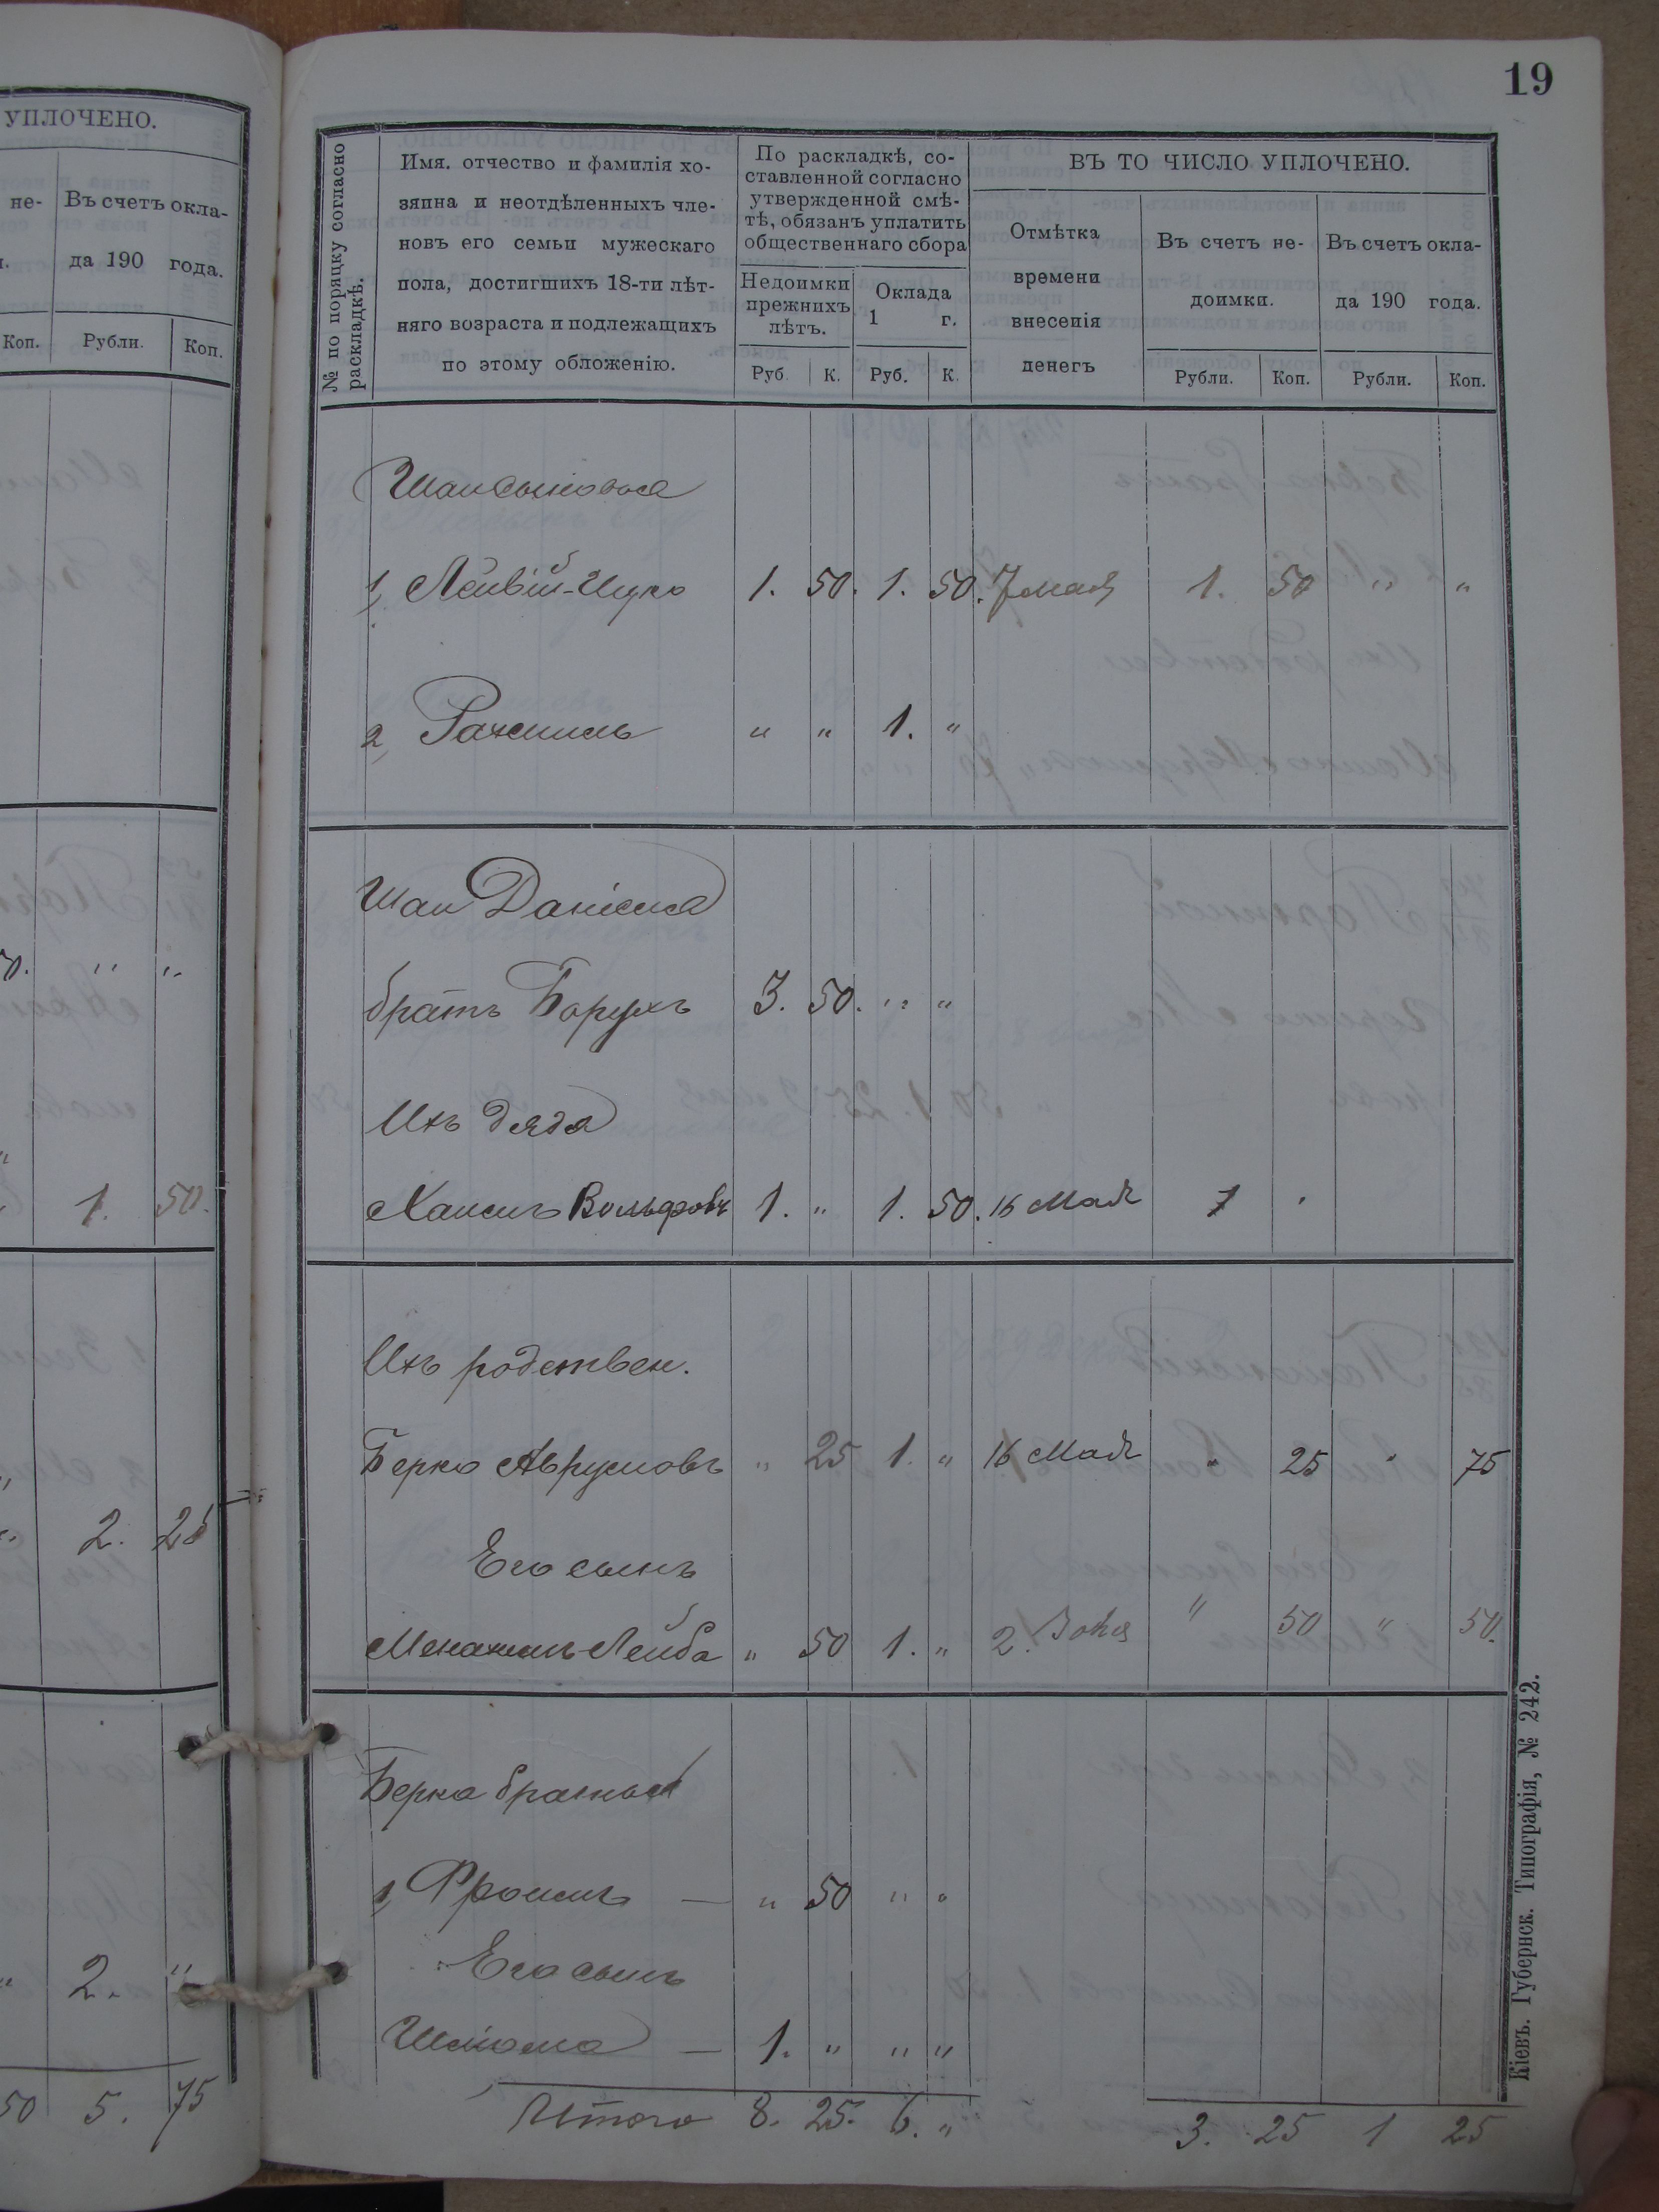 УПЛОЧЕНО.
не-
Въ счетъ окла-
да 190 года.
Коп.
Рубли.
Коп.
" "
1. 50.
2. 25
2. "
50 5. 75
19
№ по порядку согласно раскладкѣ.
Имя. отчество и фамилія хо-
зяпна и неотдѣленныхъ чле-
новъ его семьи мужескаго
пола, достигшихъ 18-ти лѣт-
няго возраста и подлежащихъ
по этому обложенію.
По раскладкѣ, со-
ставленной согласно
утвержденной смѣ-
тѣ, обязанъ уплатить
общественнаго сбора
Недоимки
прежнихъ
лѣтъ.
Оклада
1 г.
Руб. К. Руб. К.
Отмѣтка
времени
внесенія
денегъ
ВЪ ТО ЧИСЛО УПЛОЧЕНО.
Въ счетъ не-
доимки.
Въ счетъ окла-
да 190 года.
Рубли. Коп. Рубли. Коп.
1, Лейвій-Ицко 1. 50. 1. 50. 7 мая 1. 50 " "
2, Рахмиль " " 1. "
братъ Борухъ 3. 50. " "
Ихъ дядя
Хаимъ Вольфовъ 1. " 1. 50. 16 Мая 1 "
Ихъ родствен.
Берко Аврумовъ " 25 1. " 16 Мая " 25 " 75
Его сынъ
Менахемъ-Лейба " 50 1. " 2. " 50 " 50.
Берка братья
1, Фроимъ — " 50 " "
Его сынъ
Шлиома — 1. " " "
Итого 8. 25. 6. " 3. 25 1 25
Кіевъ. Губернск. Типографія, № 242.